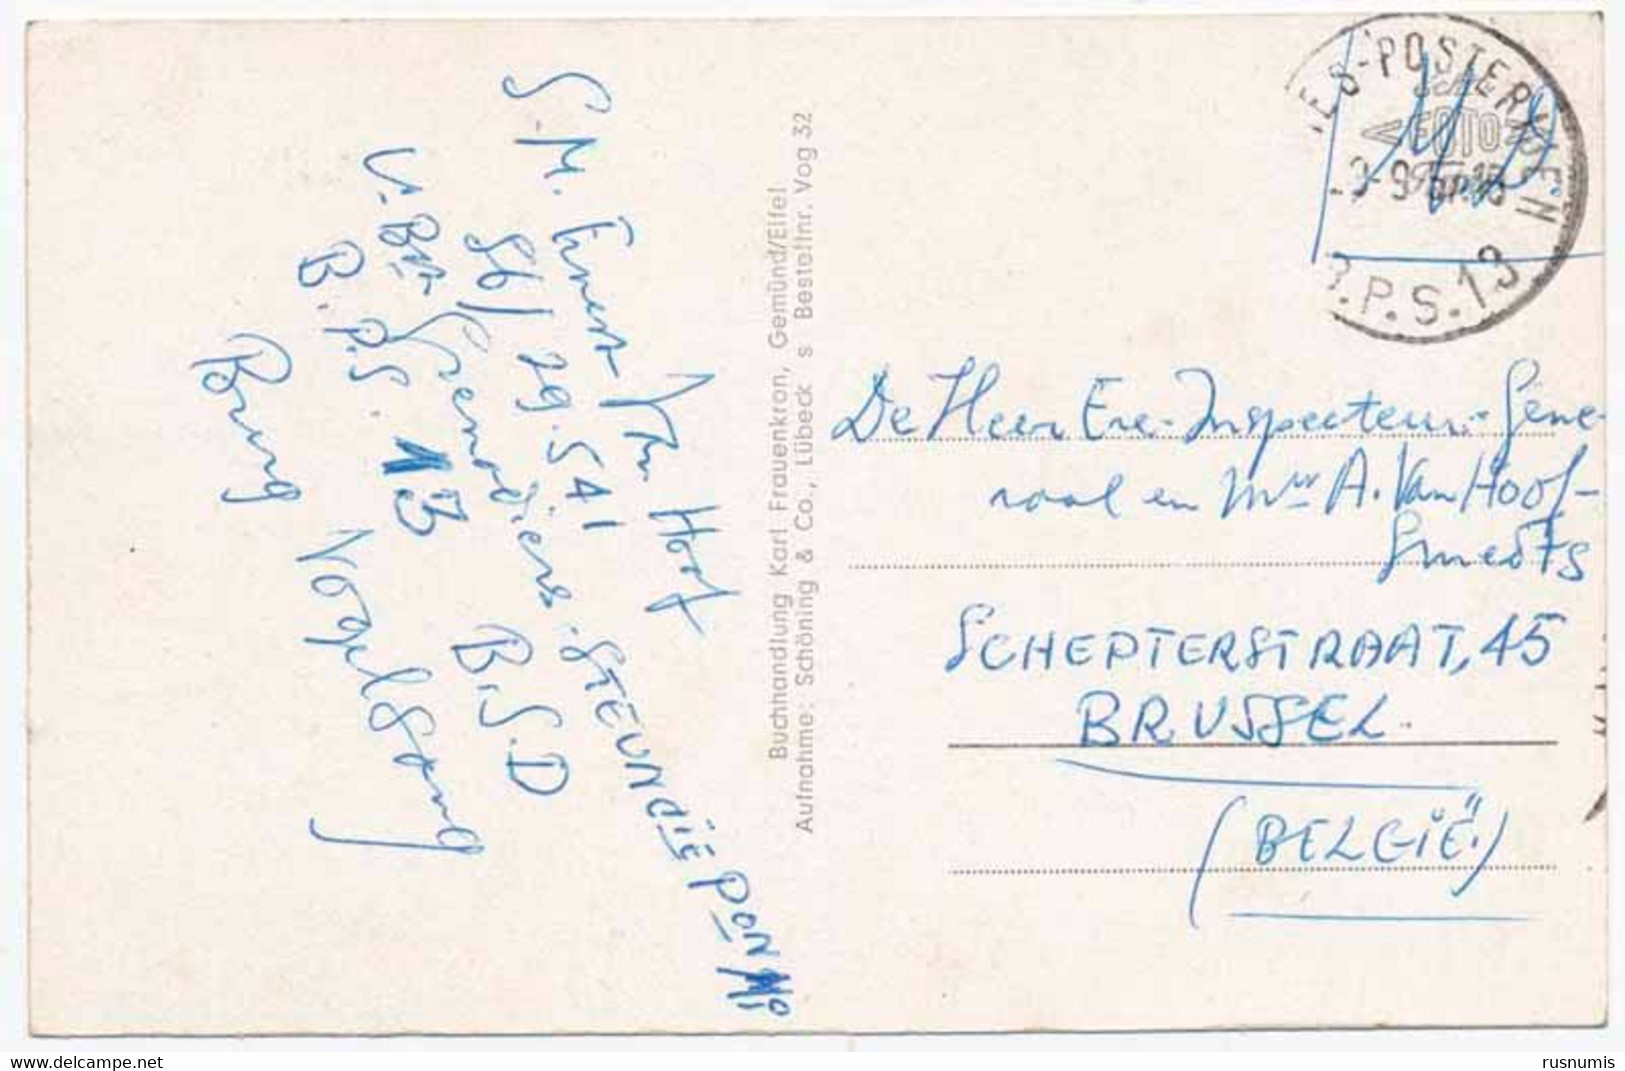 S.M. Ernest Van Hoof
56/29.541 STEUNCIE PON No
1e Bn Grenadiers
B.P.S. 13 B.S.D
Burg Vogelsang
Buchhandlung Karl Frauenkron, Gemünd/Eifel
Aufnahme: Schöning & Co., Lübeck s Bestellnr. Vog 32
ES-POSTERIJEN
FOTO
-9-9
.P.S.13
De Heer Ere-Inspecteur-Gene-
raal en Mvr A. Van Hoof-
Smedts
SCHEPTERSTRAAT, 45
BRUSSEL.
(BELGIË)
rusnumis